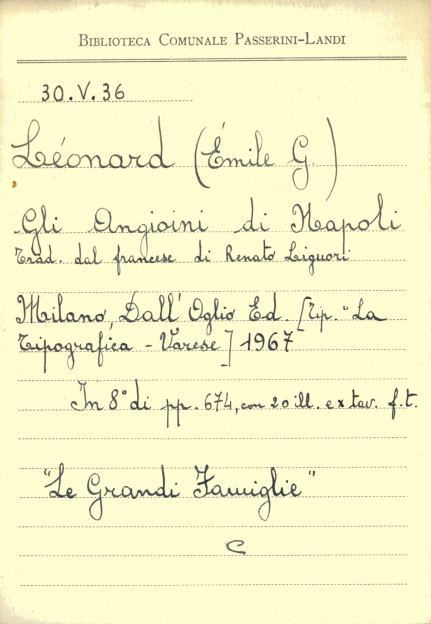 BIBLIOTECA COMUNALE PASSERINI-LANDI
30.V.36
Léonard (Émile G.)
Gli Angioini di Napoli
Trad. dal francese di Renato Liguori
Milano, Dall'Oglio Ed. [Tip. "La
Tipografica - Varese] 1967
In 8° di pp. 674, con 20 ill. e x tav. f.t.
"Le Grandi Famiglie"
C